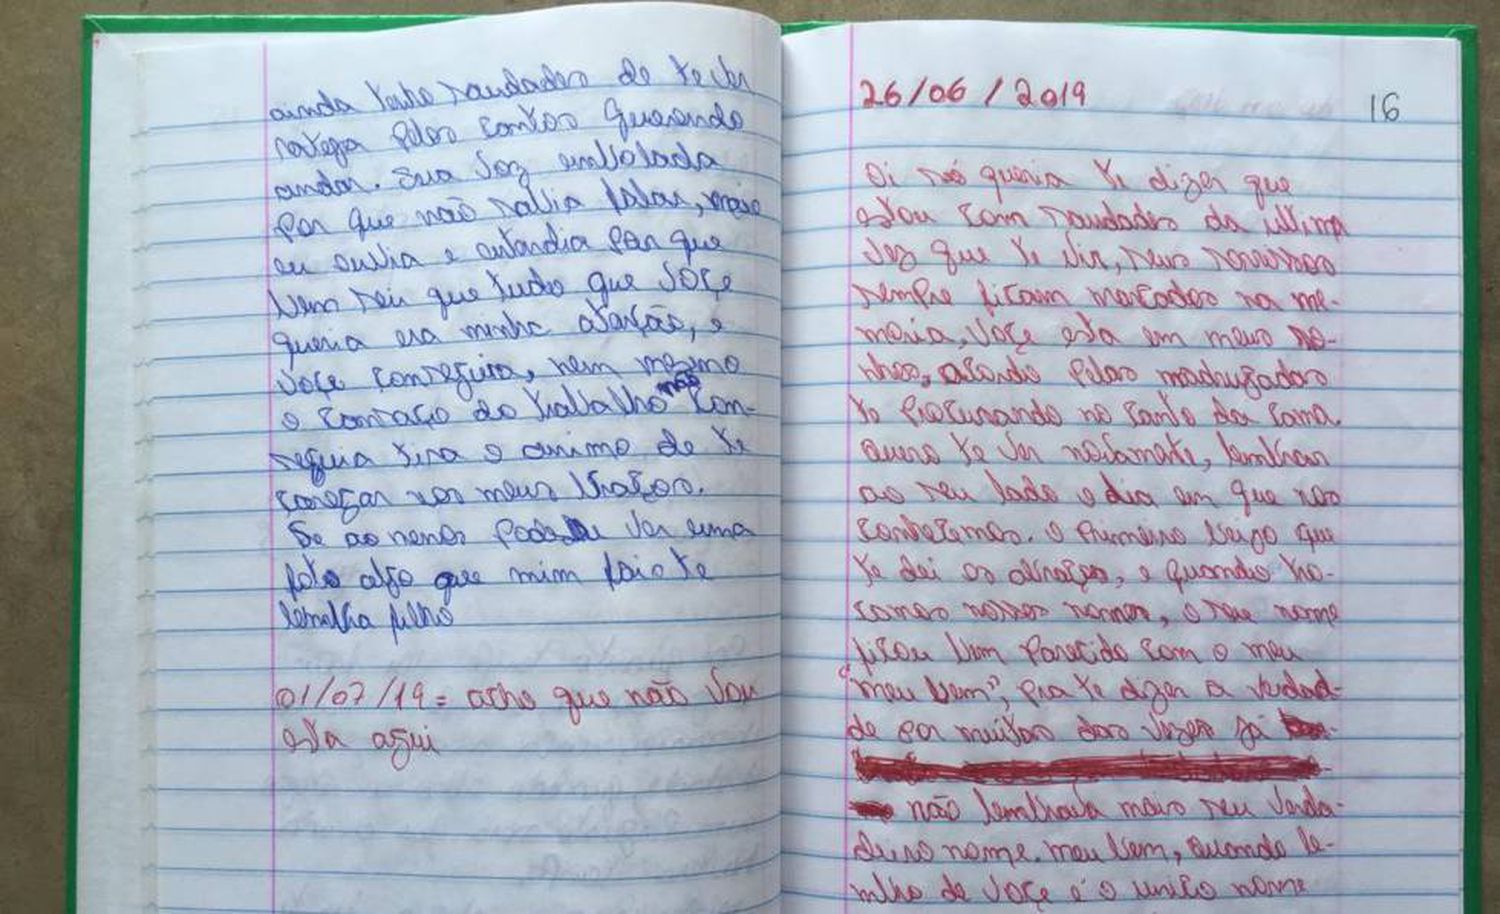 ainda tenho saudades de te ver
pelos cantos querendo
andar. Sua voz embolada
por que não sabia falar, mais
eu ouvia e entendia por que
bem sei que tudo que voçe
queria era minha atenção, e
voçe conseguia, nem mesmo
o cansaço do trabalho não con-
seguia tira o animo de te
caregar nos meus braços.
Se ao menos podesse ver uma
foto algo que mim fais te
lembra filho
01/07/19 = acho que não vou
esta aqui
26/06/2019
16
Oi só queria te dizer que
estou com saudades da ultima
vez que te vir, seus sorrisos
sempre ficam marcados na me-
moria, voçe esta em meus so-
nhos, acordo pelas madrugadas
te procurando no canto da cama.
quero te ver novamente, lembrar
ao seu lado o dia em que nos
conhecemos. o primeiro beijo que
te dei os abraços, e quando tro-
camos nossos nomes, o seu nome
ficou bem parecido com o meu
"meu bem", pra te dizer a verdad-
de por muitas das vezes já
não lembrava mais seu verda-
deiro nome. meu bem, quando le-
mbro de voçe é o unico nome